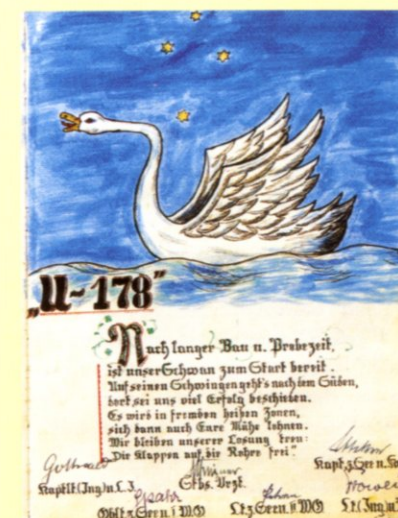 „U-178"
Nach langer Bau u. Probezeit,
ist unser Schwan zum Start bereit.
Auf seinen Schwingen geht's nach dem Süden,
dort sei uns viel Erfolg beschieden.
Es wird in fremden heißen Zonen,
sich dann auch Eure Mühe lohnen.
Wir bleiben unserer Losung treu:
„Die Klappen auf, die Rohre frei"
Kaptlt (Ing) u. L.I.
Stbs. Arzt.
Kapt. z. See u.
Oblt z. See u. I WO
Lt z. See u. II WO
Lt. (Ing) u.